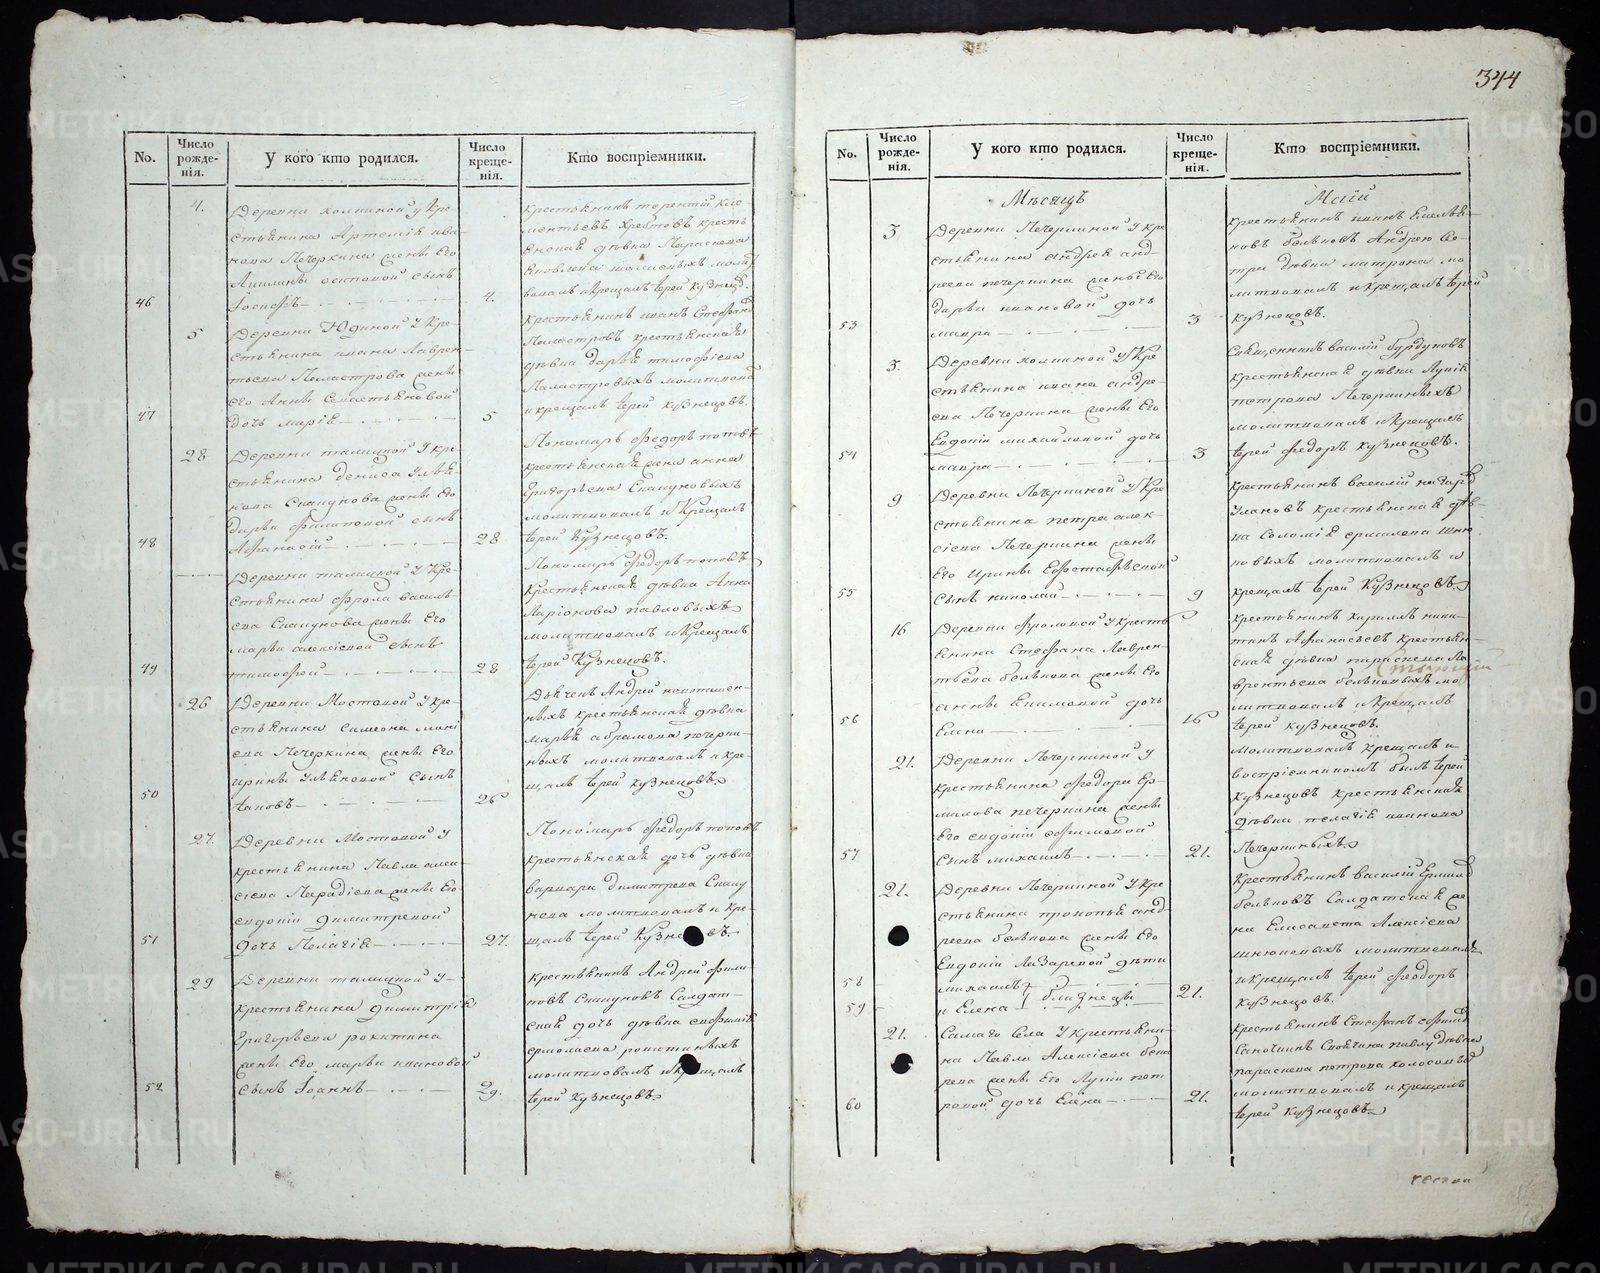 344
No.
Число рожде-нія.
У кого кто родился.
Число креще-нія.
Кто воспріемники.
4.
Деревни колпиной у кре-
стьянина Артемія ива-
нова Печеркина жены его
осиповой сынъ
46
Іосифъ
4.
крестьянинъ терентій кле-
ментьевъ крестъ
янская дѣвка Параскева
яковлева молит
вовалъ и крещалъ Іерей Кузнецов.
5
Деревни Юдиной у кре-
стьянина ивана Лаврен-
тьева жены
его Анны Севастьяновой
47
дочь марія
5
крестьянинъ иванъ Стефано
крестьянская
дѣвка дарья тимофіева
молитвовалъ
и крещалъ Іерей Кузнецовъ.
28
Деревни талицкой у кре-
стьянина дениса Улья
нова Спацукова жены его
дарьи филиповой сынъ
48
Афанасій
28
Пономарь Федоръ поповъ
крестьянская жена анна
Григорьева Спацуковыхъ
молитвовалъ и крещалъ
Іерей Кузнецовъ.
Деревни талицкой у кре-
стьянина фрола василь-
ева Спацукова жены его
марьи алексіевой сынъ
49
тимофей
28
Пономарь Федоръ поповъ
крестьянская дѣвка Анна
Ларіонова павловыхъ
молитвовалъ и крещалъ
Іерей Кузнецовъ.
26
Деревни Мостовой у кре-
стьянина Симеона
Печеркина жены его
ирины Ульяновой сынъ
50
іаковъ
26
Дьячекъ Андрей
крестьянская дѣвка
марья абрамова печерки-
ныхъ молитвовалъ и кре-
щалъ Іерей Кузнецовъ.
27.
Деревни Мостовой у
крестьянина Павла алек-
сіева жены его
евдокіи димитревой
51
дочь Пелагія
27.
Пономарь Федоръ поповъ
крестьянская дочь дѣвка
варвара димитрева Спацу
кова молитвовалъ и кре-
щалъ Іерей Кузнецовъ.
29
Деревни талицкой у
крестьянина димитрія
Григорьева рокитина
жены его марьи ивановой
52
сынъ Іоаннъ
29.
крестьянинъ Андрей фили
повъ Спацуковъ Салдат-
ская дочь дѣвка евфимія
ермолаева рокитиныхъ
молитвовалъ и крещалъ
Іерей Кузнецовъ.
No.
Число рожде-нія.
У кого кто родился.
Число креще-нія.
Кто воспріемники.
Мѣсяцъ
Маій
3
Деревни Печеркиной у кре
стьянина андрея анд-
реева печеркина жены его
дарьи ивановой дочь
53
мавра
3
крестьянинъ иванъ Емельян-
новъ бельковъ
дѣвка матрона мо
литвовалъ и крещалъ Іерей
Кузнецовъ.
3.
Деревни колпиной у кре
стьянина ивана андре-
ева Печеркина жены его
Евдокіи михайловой дочь
54
мавра
3
Священникъ василій бурдуковъ
крестьянская дѣвка Лукія
петрова Печеркиныхъ
молитвовалъ и крещалъ
Іерей Федоръ Кузнецовъ.
9
Деревни Печеркиной у кре
стьянина петра алек-
сіева Печеркина жены
его Ирины Евстафьевой
55
сынъ николай
9
крестьянинъ василій
крестьянская дѣв-
ка Соломія ермилова шню
ковыхъ молитвовалъ и
крещалъ Іерей Кузнецовъ.
16
Деревни фроловой у кресть
янина Стефана Лаврен-
тьева белькова жены его
анны Екимовой дочь
56
Елена
16
крестьянинъ кирилъ ники-
тинъ Афанасьевъ крестьян-
ская дѣвка параскева Ла
врентьева бельковыхъ мо
литвовалъ и крещалъ
Іерей Кузнецовъ.
21.
Деревни Печеркиной у
крестьянина Федора Ер-
милова печеркина жены
его евдокіи ефимовой
57
сынъ михаилъ
21.
молитвовалъ крещалъ и
воспріемникомъ былъ Іерей
Кузнецовъ крестьянская
дѣвка пелагія иванова
Печеркиныхъ
21.
Деревни Печеркиной у кре
стьянина прокопья анд-
реева белькова жены его
Евдокіи Лазаревой дѣти
58
михаилъ
59
и Елена близнецы
21.
крестьянинъ василій Ермило
бельковъ Салдатская же
на Елисавета Алексіева
шнюковыхъ молитвовалъ
и крещалъ Іерей Феодоръ
Кузнецовъ.
21.
Самаго села у крестьяни-
на Павла Алексіева
жены его Лукіи пет
60
ровой дочь Елена
21.
крестьянинъ Стефанъ ефимо
дѣвка
параскева петрова
молитвовалъ и крещалъ
Іерей Кузнецовъ
METRIKI.GASO-URAL.RU